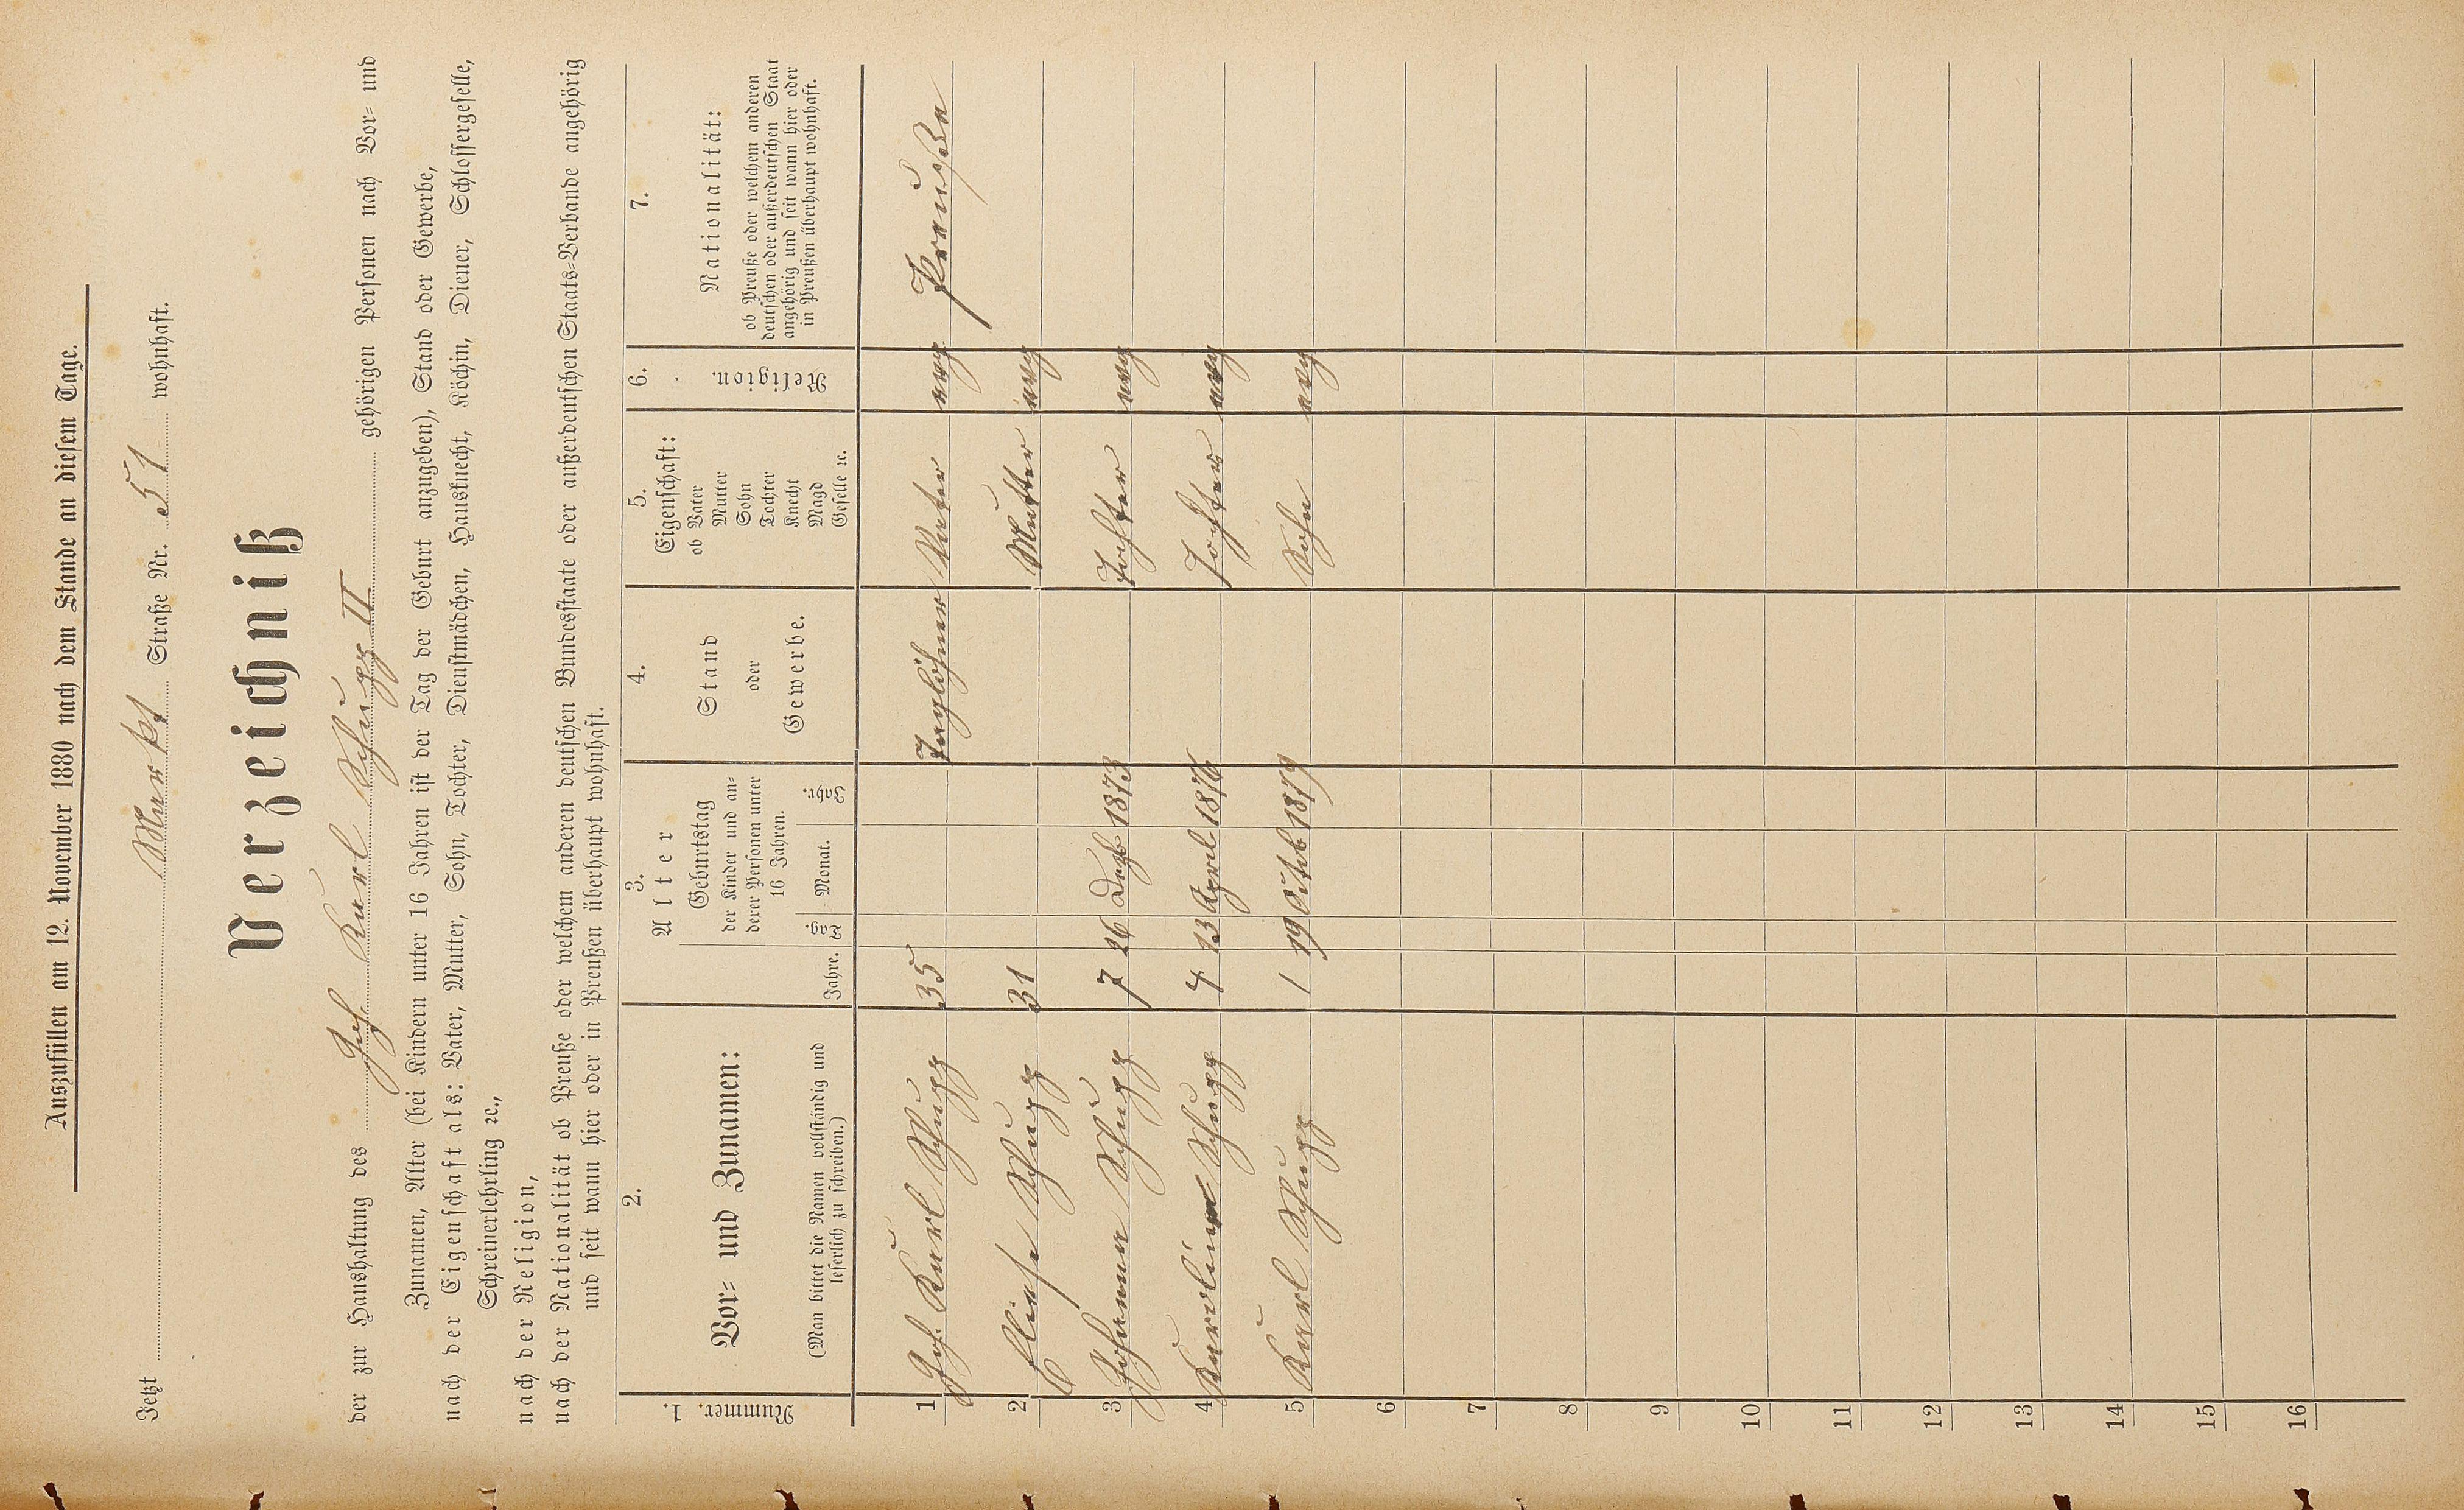 Auszufüllen am 12. November 1880 nach dem Stande an diesem Tage.
Jetzt Markt Straße Nr. 51 wohnhaft.
Verzeichniß
der zur Haushaltung des Joh. Karl Schupp II gehörigen Personen nach Vor- und
Zunamen, Alter (bei Kindern unter 16 Jahren ist der Tag der Geburt anzugeben), Stand oder Gewerbe,
nach der Eigenschaft als: Vater, Mutter, Sohn, Tochter, Dienstmädchen, Hausknecht, Köchin, Diener, Schlossergeselle,
Schreinerlehrling ꝛc.,
nach der Religion,
nach der Nationalität ob Preuße oder welchem anderen deutschen Bundesstaate oder außerdeutschen Staats-Verbande angehörig
und seit wann hier oder in Preußen überhaupt wohnhaft.
1. Nummer.
2. Vor- und Zunamen:
(Man bittet die Namen vollständig und
leserlich zu schreiben.)
3. Alter
Jahre.
Geburtstag
der Kinder und an-
derer Personen unter
16 Jahren.
Tag. Monat. Jahr.
4. Stand
oder
Gewerbe.
5. Eigenschaft:
ob Vater
Mutter
Sohn
Tochter
Knecht
Magd
Geselle ꝛc.
6. Religion.
7. Nationalität:
ob Preuße oder welchem anderen
deutschen oder außerdeutschen Staat
angehörig und seit wann hier oder
in Preußen überhaupt wohnhaft.
1 Joh. Karl Schupp 35 Taglöhner Vater evg Preuße
2 Eliese Schupp 31 Mutter evg
3 Johanna Schupp 7 26 Dezb 1873 Tochter evg
4 Karoline Schupp 4 13 April 1876 Tochter evg
5 Karl Schupp 1 19 Octob 1879 Sohn evg
6
7
8
9
10
11
12
13
14
15
16